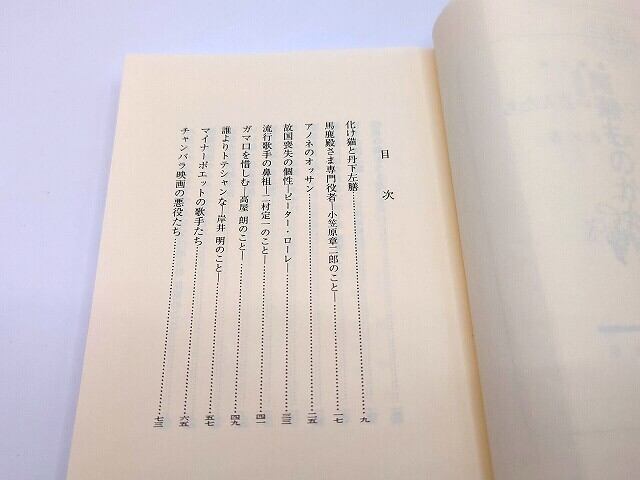 目次
化け猫と丹下左膳……九
馬鹿殿さま専門役者―小笠原章二郎のこと―……一七
アノネのオッサン……二五
故国喪失の個性―ピーター・ローレ―……三三
流行歌手の鼻祖―二村定一のこと―……四一
ガマ口を惜しむ―高屋 朗のこと―……四九
誰よりトテシャンな―岸井 明のこと―……五七
マイナーポエットの歌手たち……六五
チャンバラ映画の悪役たち……七三